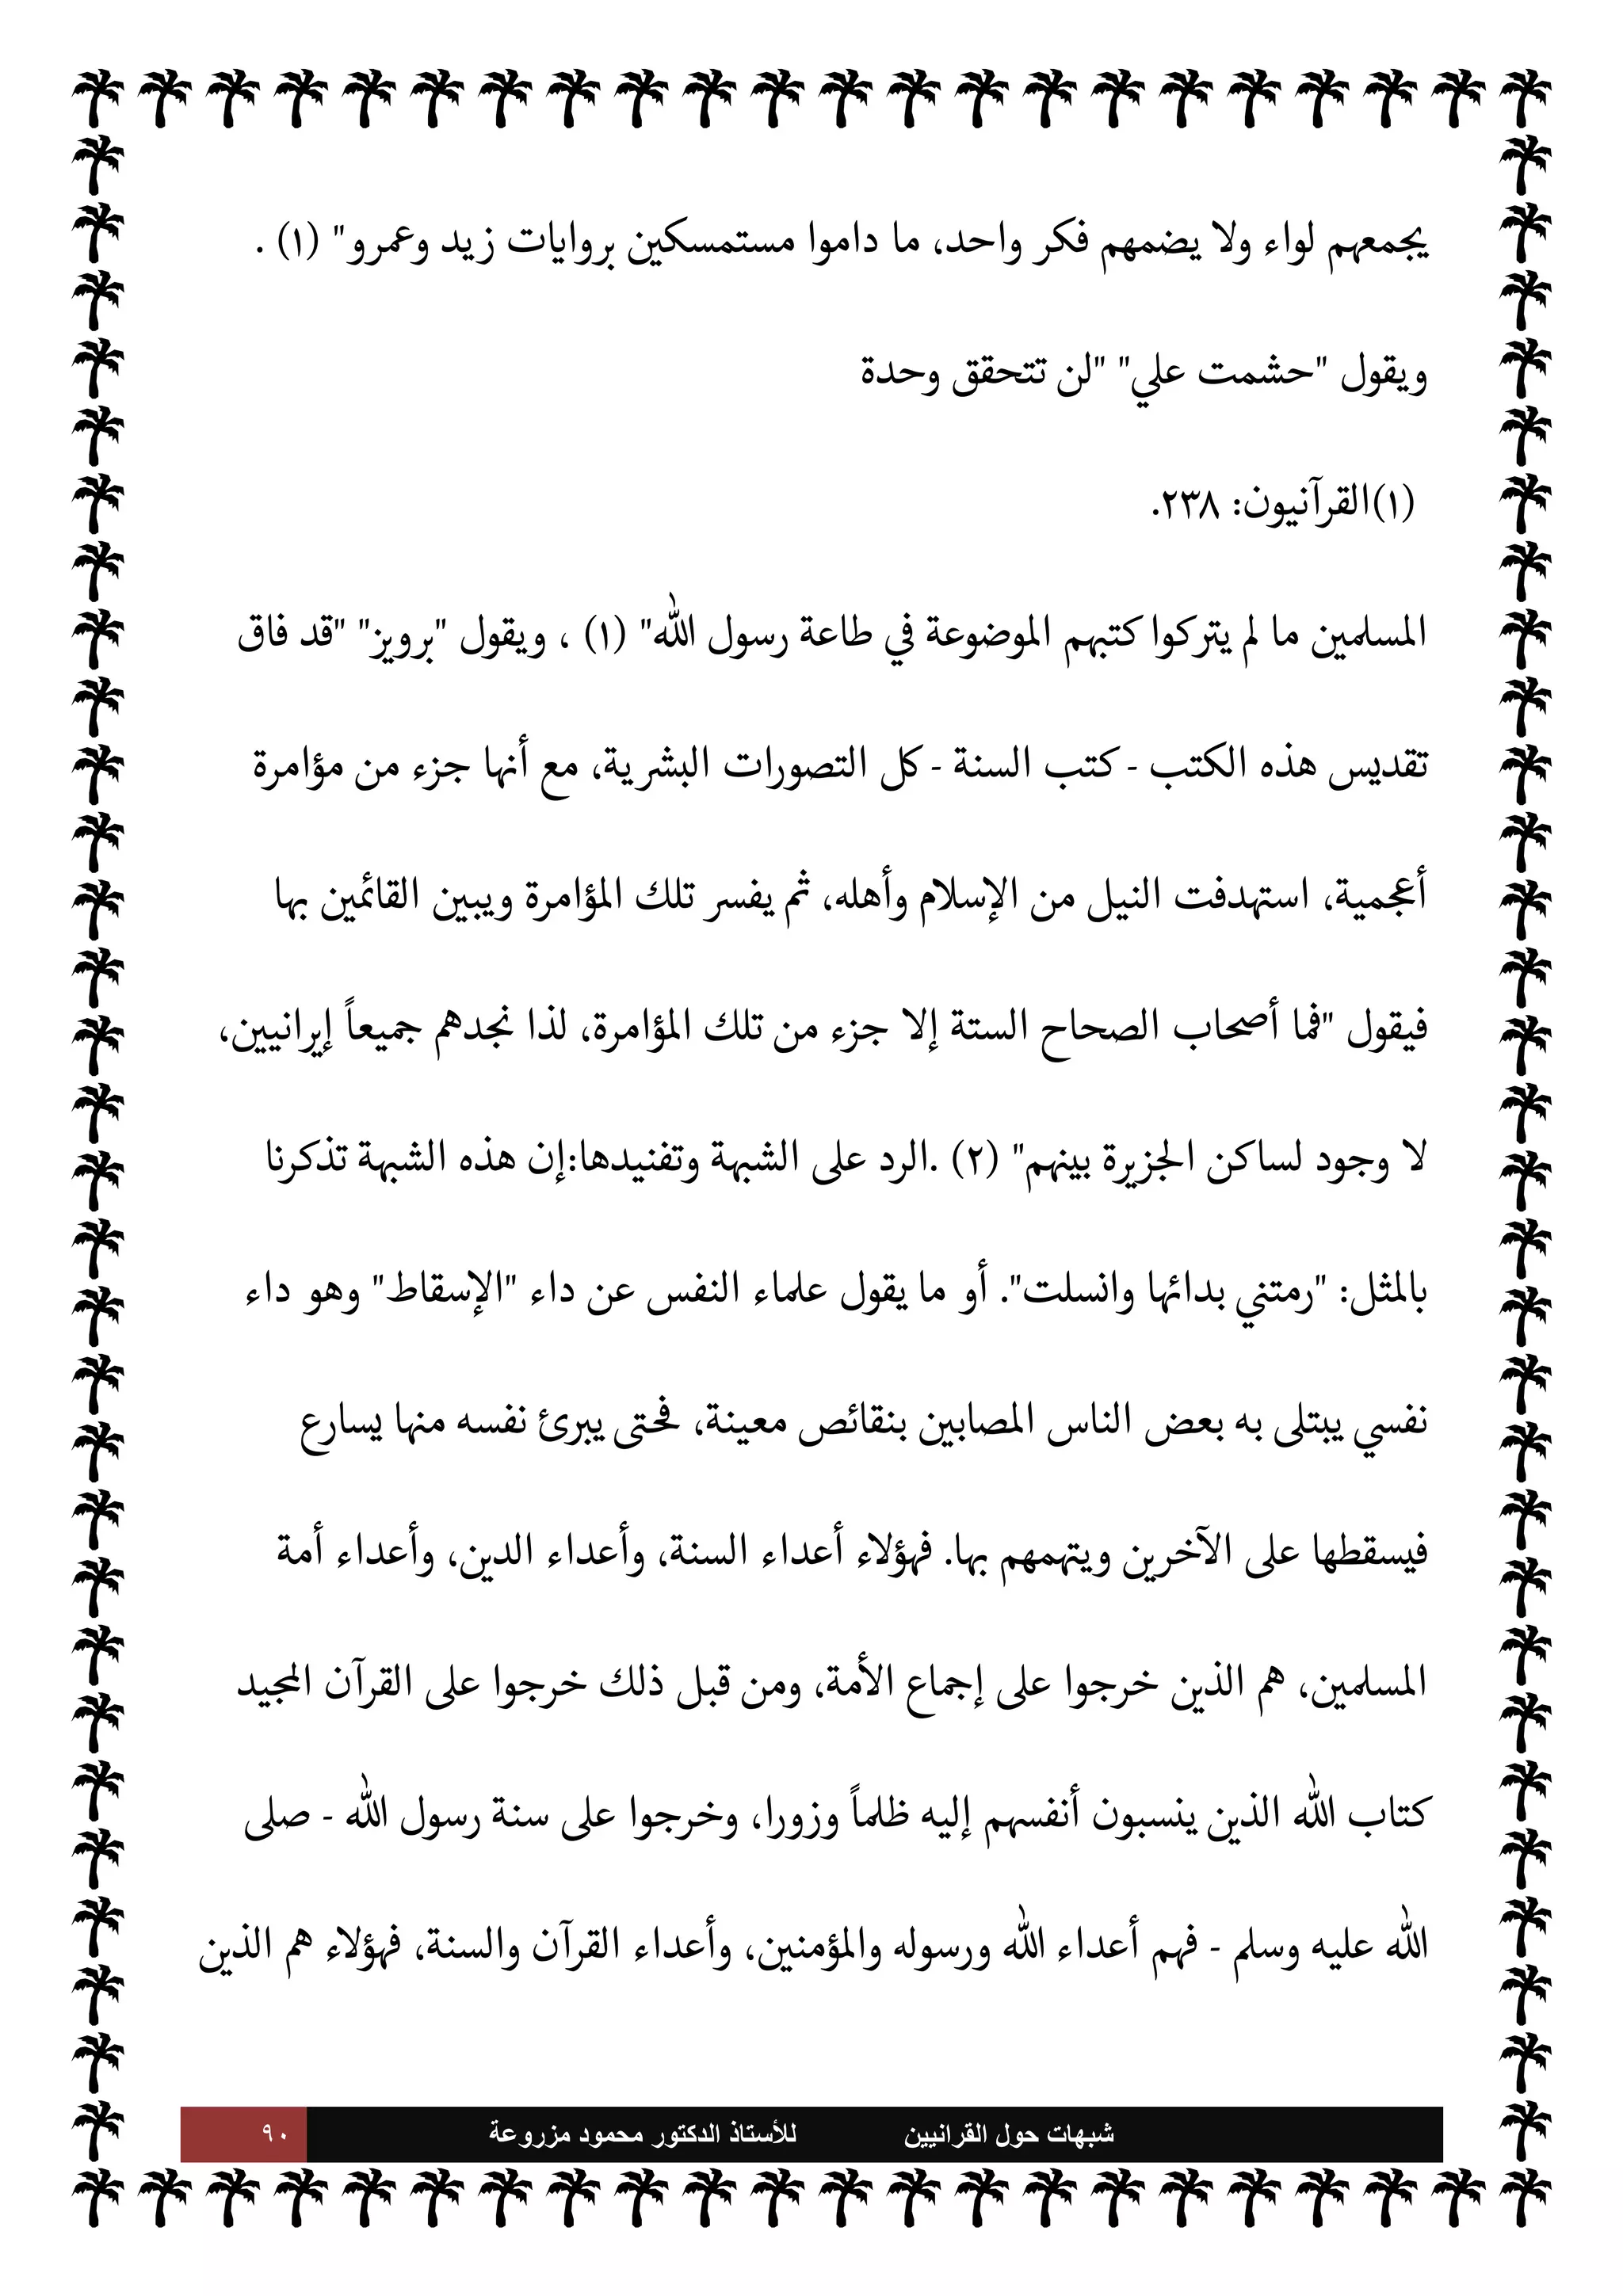 يجمعهم لواء ولا يضمهم فكر واحد، ما داموا مستمسكين بروايات زيد وعمرو" (١) .
ويقول "حشمت علي" "لن تتحقق وحدة
(١)القرآنيون: ٢٣٨.
المسلمين ما لم يتركوا كتبهم الموضوعة في طاعة رسول الله" (١) ، ويقول "برويز" "قد فاق
تقديس هذه الكتب - كتب السنة - كل التصورات البشرية، مع أنها جزء من مؤامرة
أعجمية، استهدفت النيل من الإسلام وأهله، ثم يفسر تلك المؤامرة ويبين القائمين بها
فيقول "فما أصحاب الصحاح الستة إلا جزء من تلك المؤامرة، لذا نجدهم جميعاً إيرانيين،
لا وجود لساكن الجزيرة بينهم" (٢) .الرد على الشبهة وتفنيدها:إن هذه الشبهة تذكرنا
بالمثل: "رمتني بدائها وانسلت". أو ما يقول علماء النفس عن داء "الإسقاط" وهو داء
نفسي يبتلى به بعض الناس المصابين بنقائص معينة، فحتى يبرئ نفسه منها يسارع
فيسقطها على الآخرين ويتهمهم بها. فهؤلاء أعداء السنة، وأعداء الدين، وأعداء أمة
المسلمين، هم الذين خرجوا على إجماع الأمة، ومن قبل ذلك خرجوا على القرآن المجيد
كتاب الله الذين ينسبون أنفسهم إليه ظلماً وزورا، وخرجوا على سنة رسول الله - صلى
الله عليه وسلم - فهم أعداء الله ورسوله والمؤمنين، وأعداء القرآن والسنة، فهؤلاء هم الذين
شبهات حول القرانيين للأستاذ الدكتور محمود مزروعة ٩٠